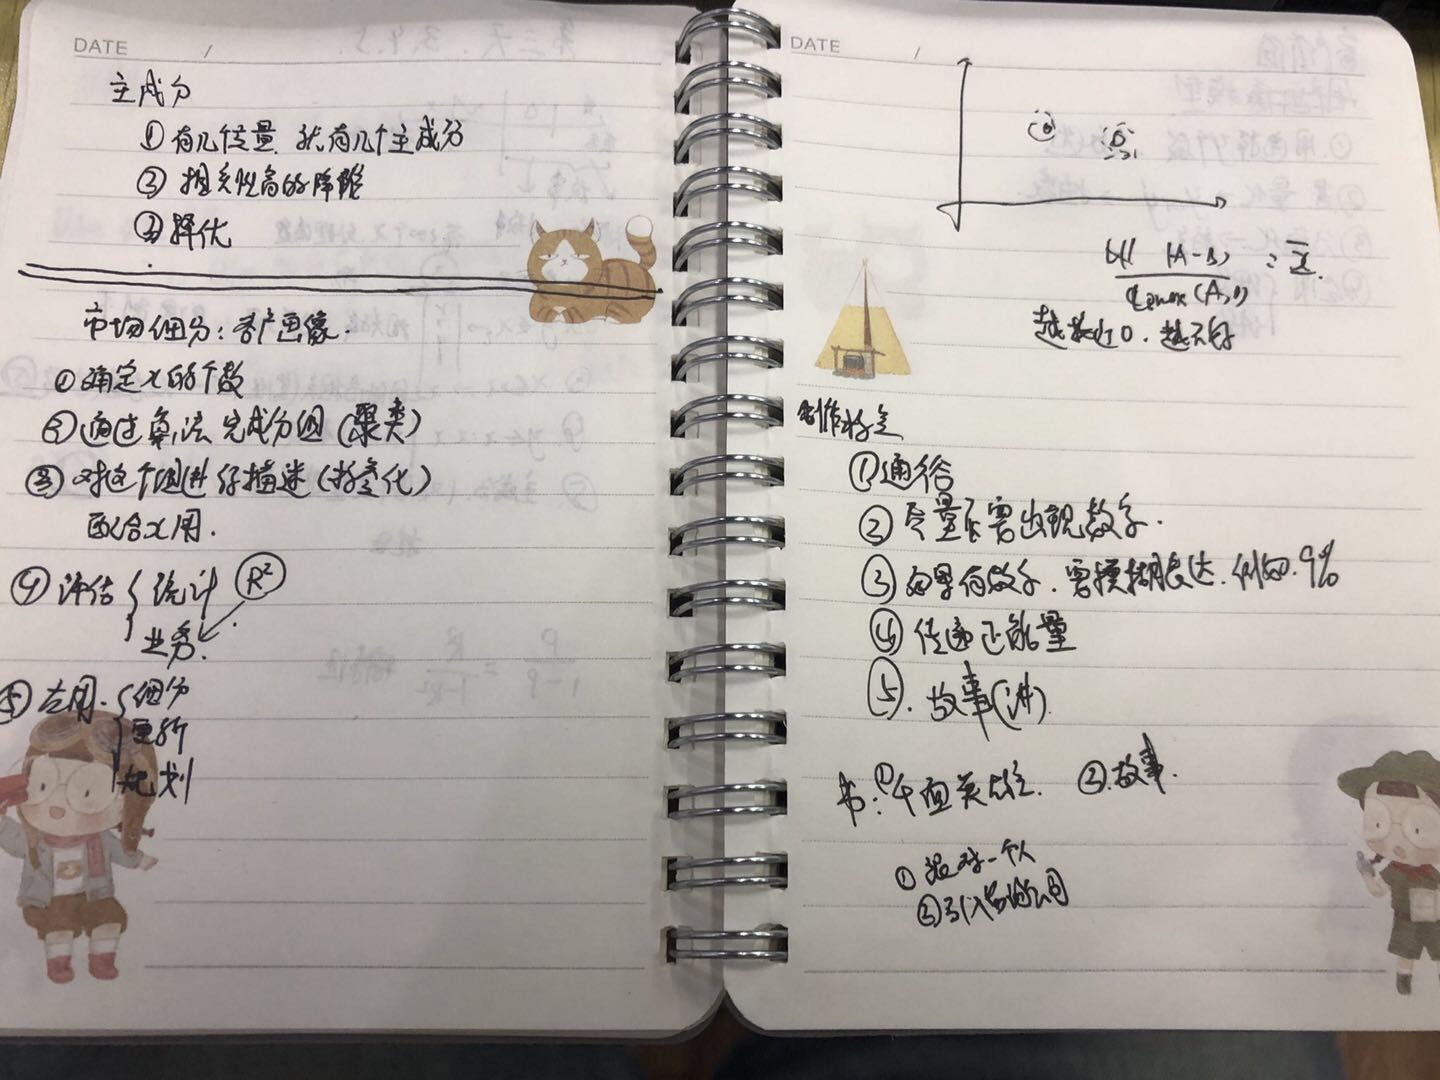 DATE /
主成分
① 有几个变量 就有几个主成分
② 相关性高的降维
③ 择优
市场细分：客户画像.
① 确定x的个数
② 通过算法完成分组（聚类）
③ 对这个组进行描述（抽象化）
配合x用.
④ 评估 { 统计 R²
业务.
⑤ 应用. { 细分
更新
规划
DATE /
A B
(A-B)
max(A,B)
越接近0. 越不好
①通俗
② 尽量不要出现数字.
③ 如果有数字. 要模糊表达. 例如. 9%
④ 传递正能量
⑤. 故事(讲)
书：①千面英雄. ②故事.
① 一个人
②引入